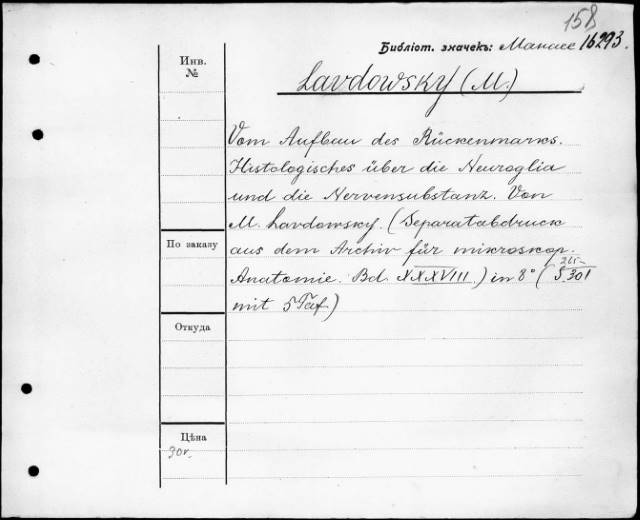 158
Библіот. значекъ: Манасс 16293.
Инв.
№
Lavdowsky (M.)
Vom Aufbau des Rückenmarks.
Histologisches über die Neuroglia
und die Nervensubstanz. Von
M. Lavdowsky. (Separatabdruck
По заказу
aus dem Archiv für mikroskop.
Anatomie. Bd. XXXVIII.) in 8° (S. 301
mit 5 Taf.)
Откуда
Цѣна